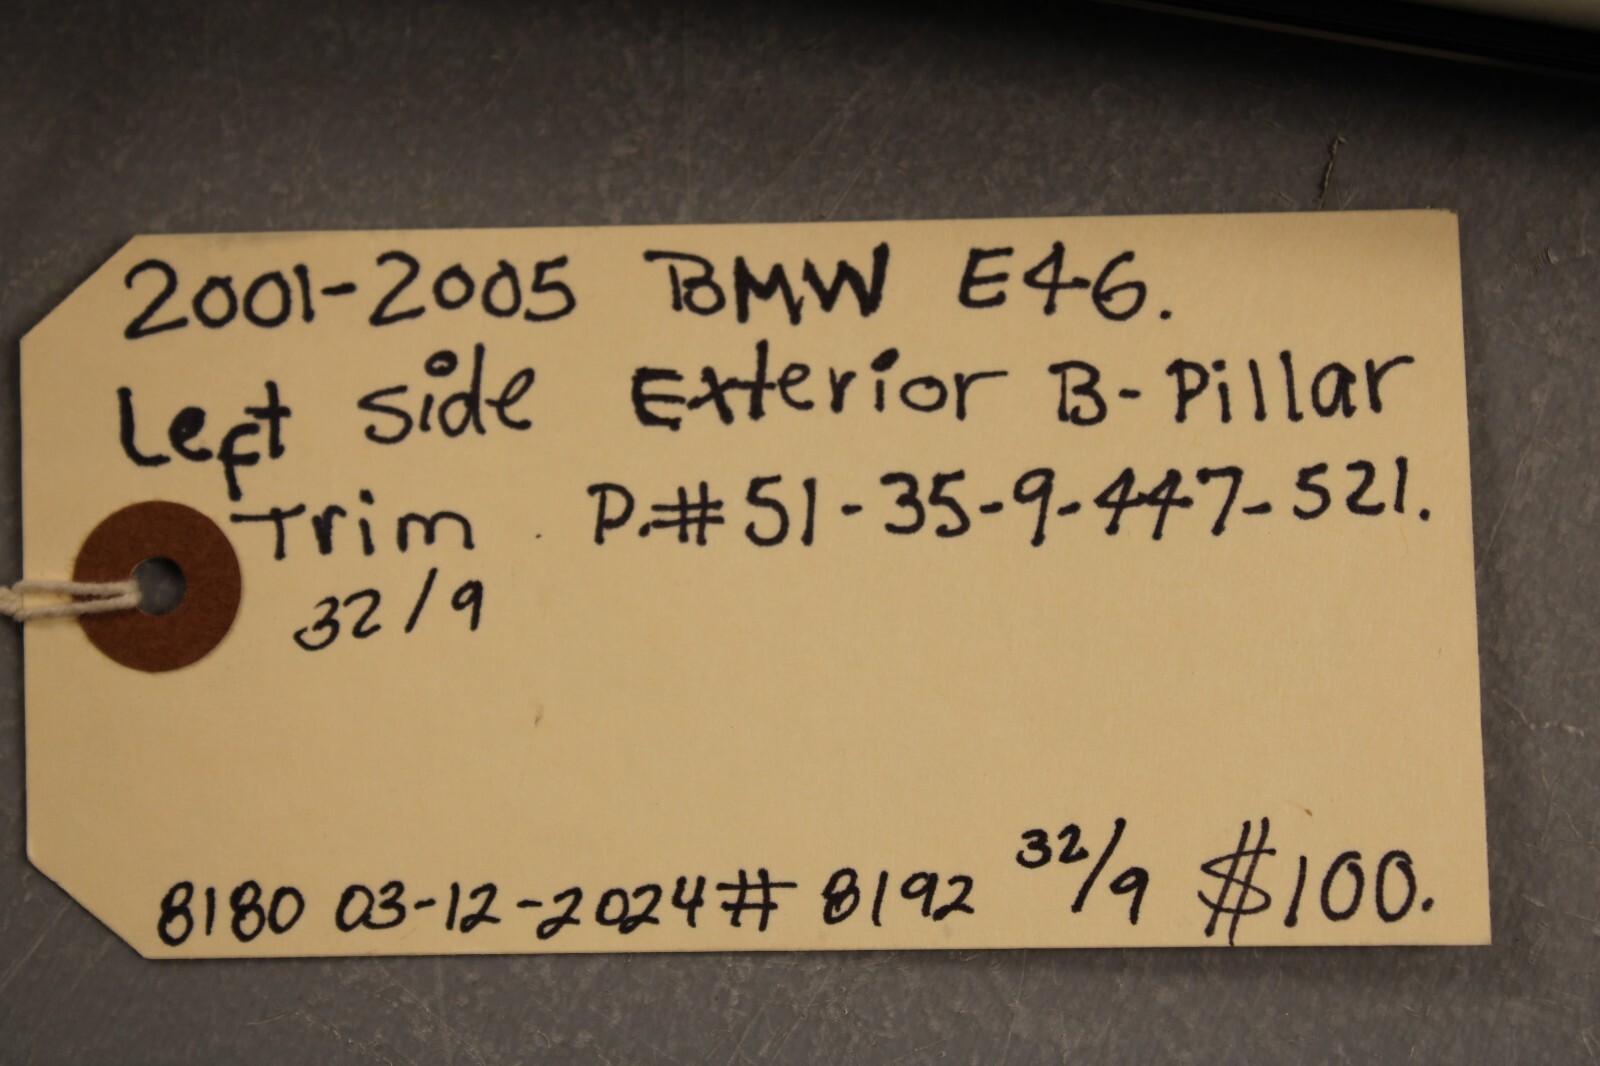 2001-2005 BMW E46.
Left side Exterior B-Pillar
Trim. P.# 51-35-9-447-521.
32/9
8180 03-12-2024 # 8192 32/9 $100.